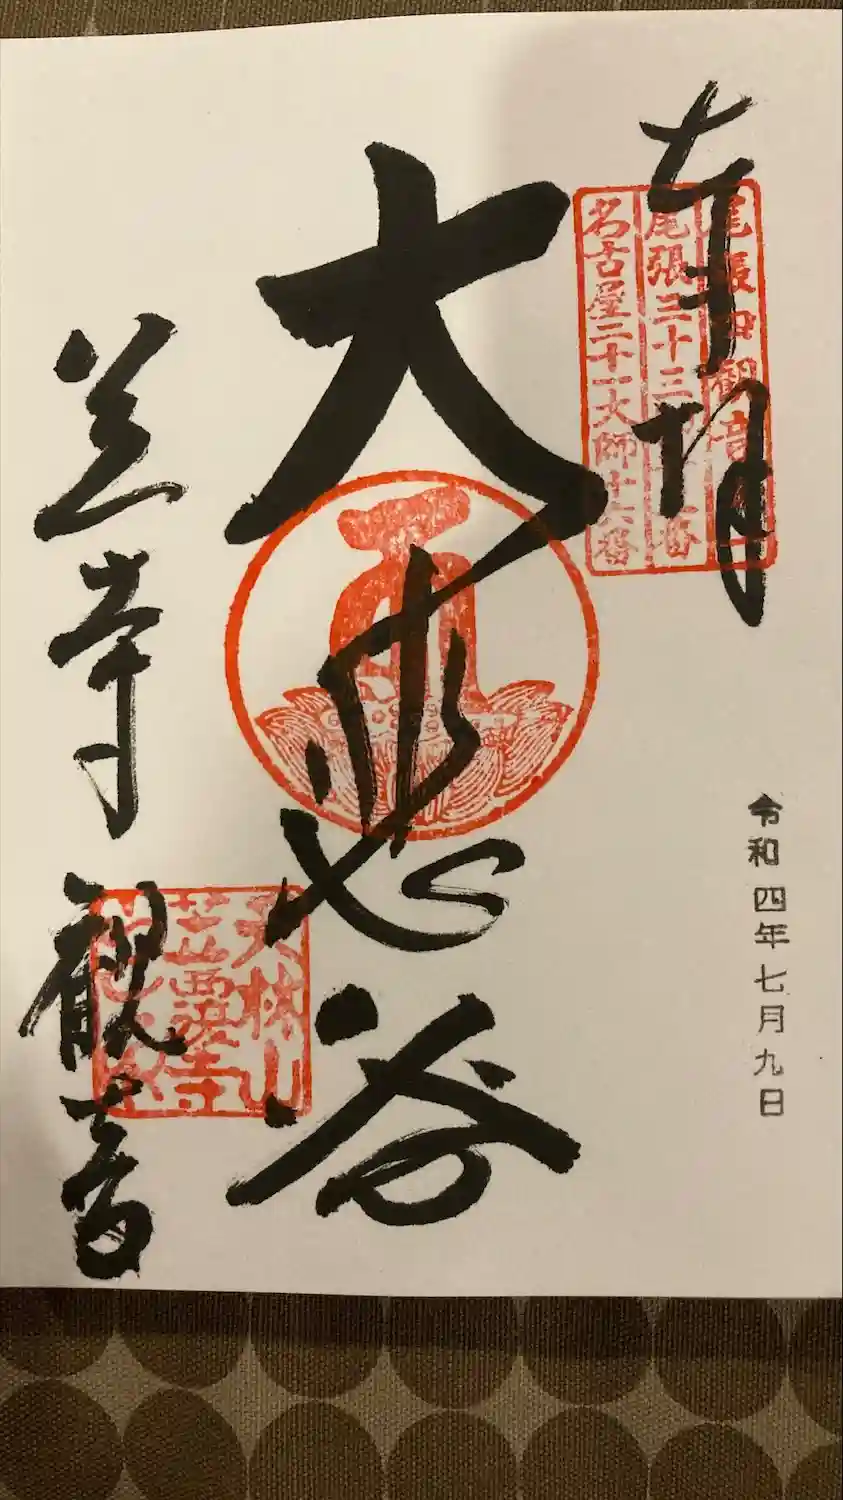 奉拝
尾張四観音
尾張三十三
名古屋二十一大師十六番
令和四年七月九日
大悲谷
天林山
笠覆寺
笠寺観音